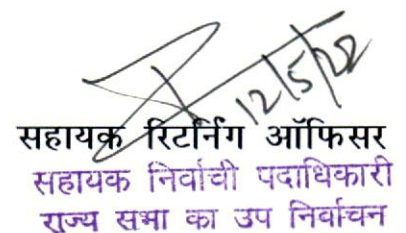 12/5/22
सहायक रिटर्निंग ऑफिसर
सहायक निर्वाची पदाधिकारी
राज्य सभा का उप निर्वाचन